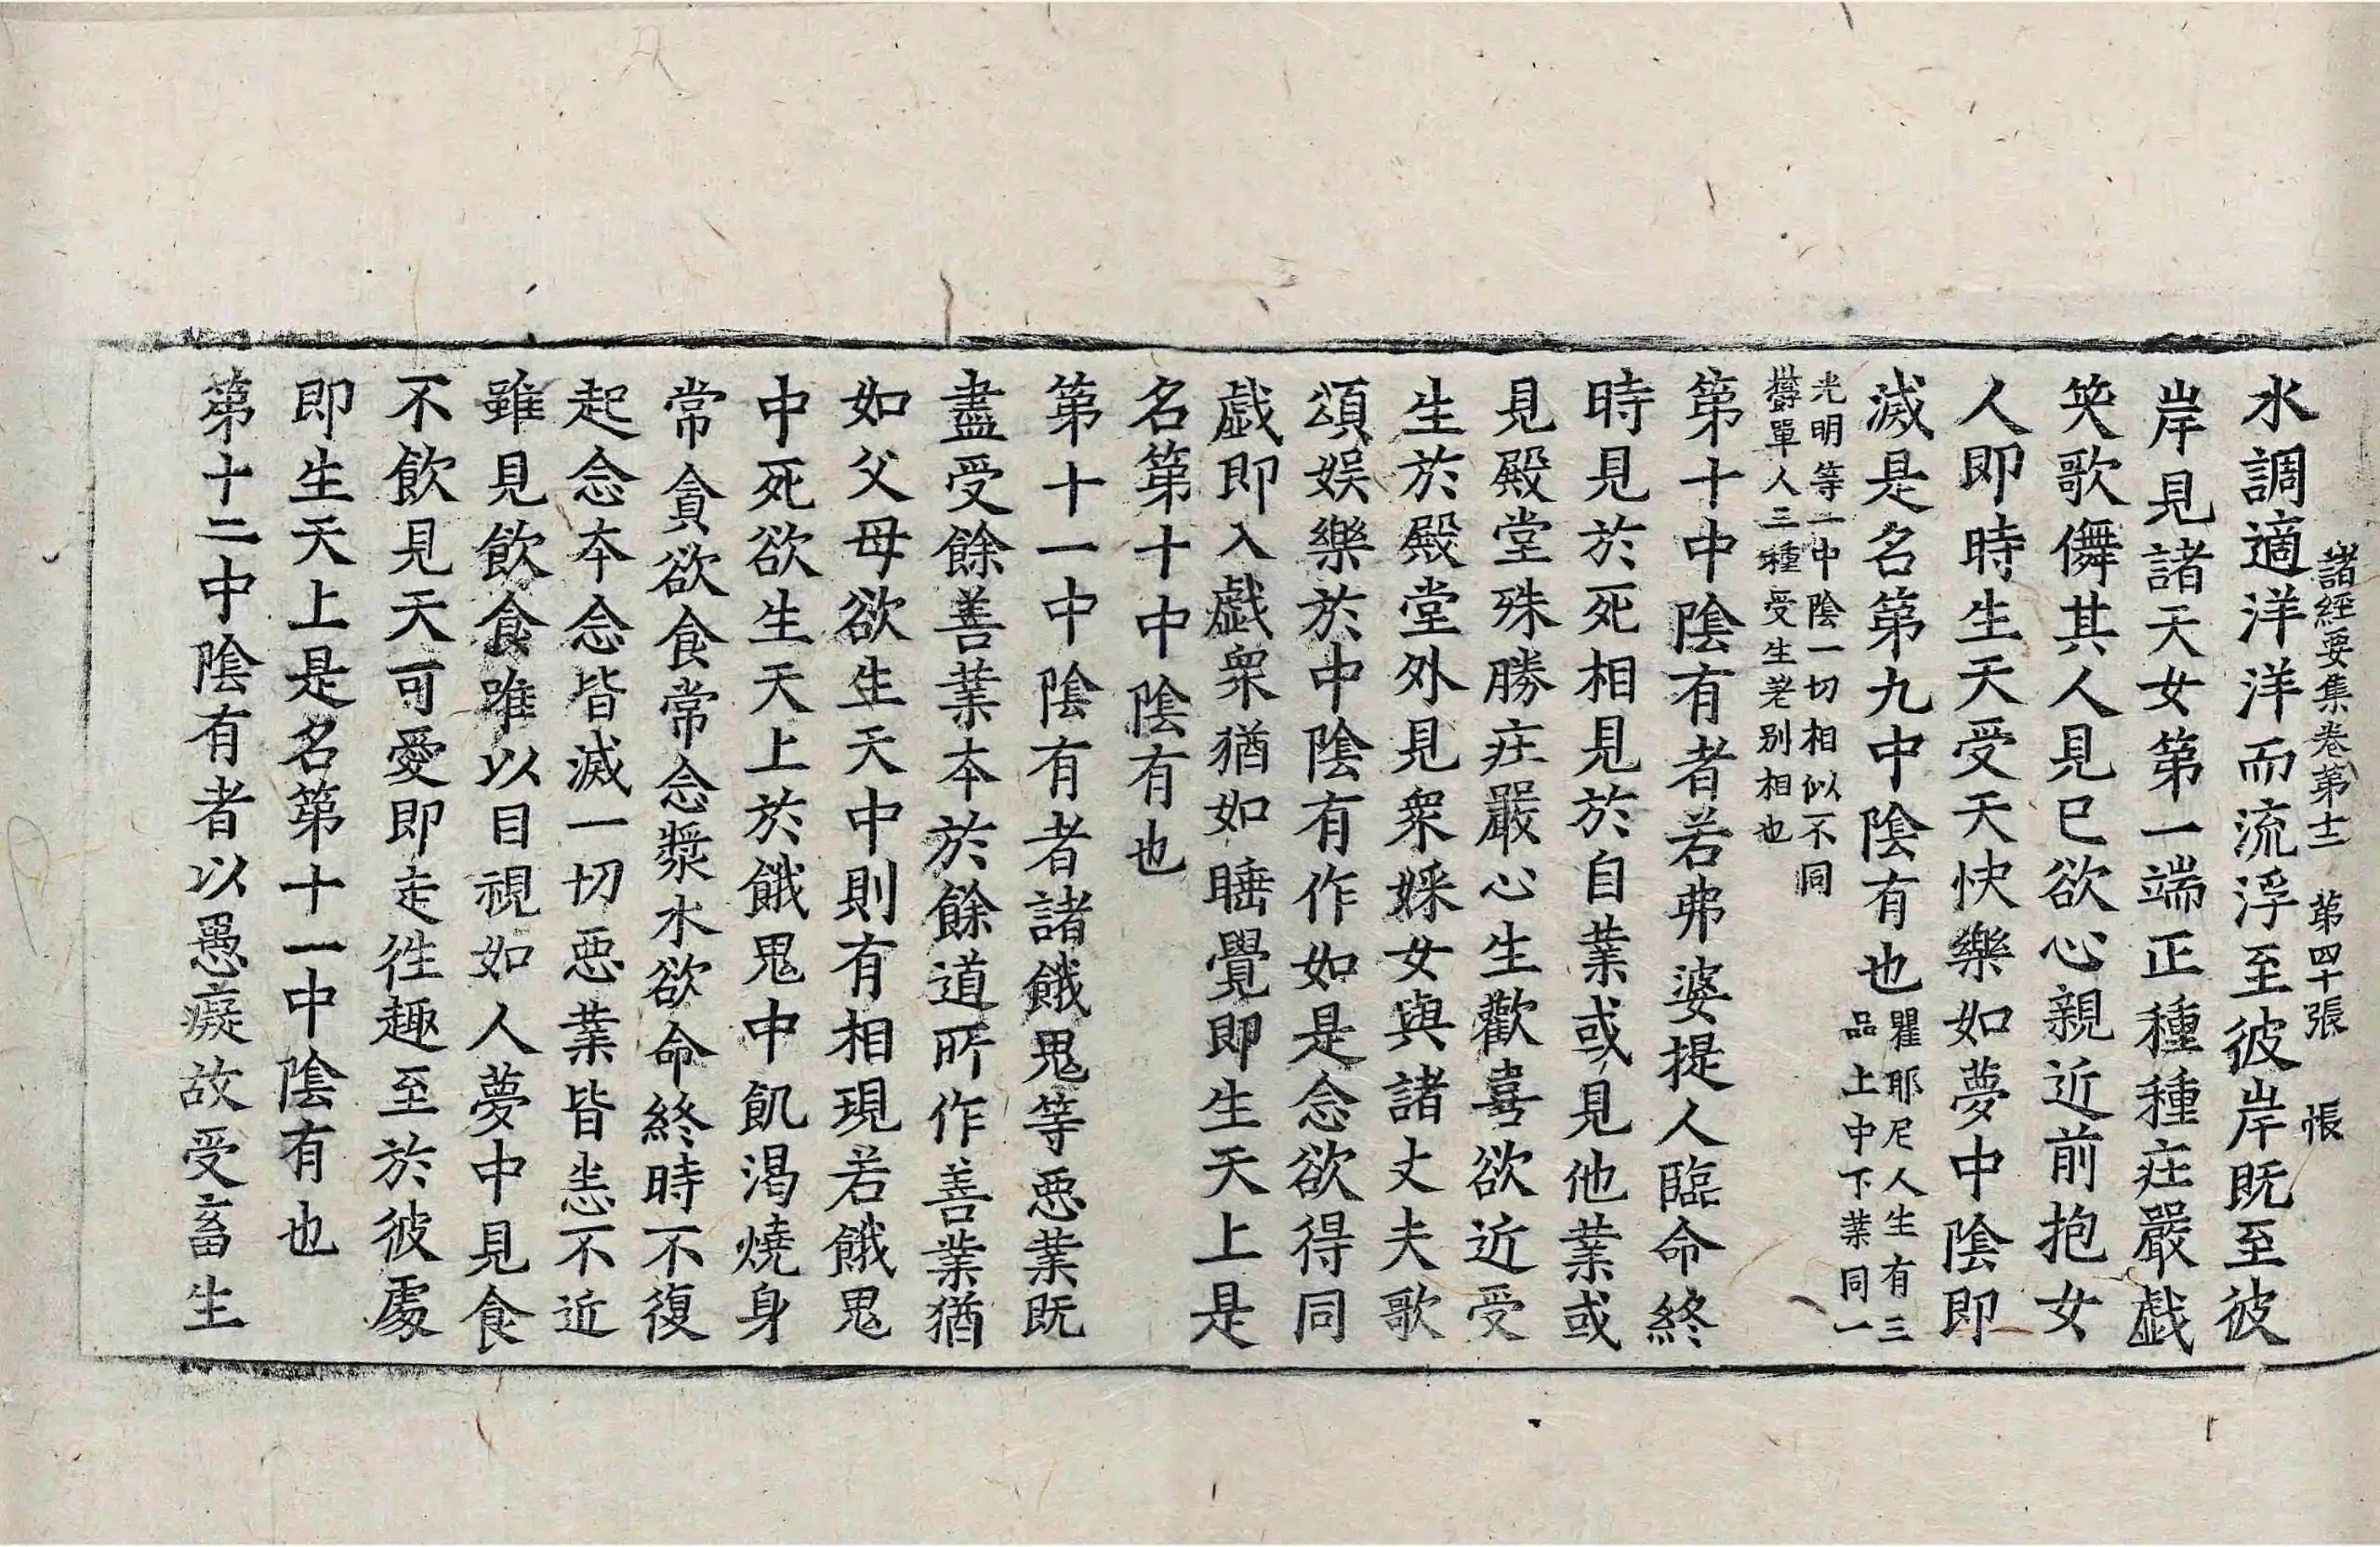 諸經要集卷第十二　第四十張　帳
水調適洋洋而流浮至彼岸既至彼
岸見諸天女第一端正種種庄嚴戯
笑歌儛其人見已欲心親近前抱女
人即時生天受天快樂如夢中陰即
滅是名第九中陰有也瞿耶尼人生有三
品上中下業同一
光明等一中陰一切相似不同
欝單人三種受生差別相也
第十中陰有者若弗婆提人臨命終
時見於死相見於自業或見他業或
見殿堂殊勝庄嚴心生歡喜欲近受
生於殿堂外見衆婇女與諸丈夫歌
頌娛樂於中陰有作如是念欲得同
戯即入戯衆猶如睡覺即生天上是
名第十中陰有也
第十一中陰有者諸餓鬼等惡業既
盡受餘善業本於餘道所作善業猶
如父母欲生天中則有相現若餓鬼
中死欲生天上於餓鬼中飢渴燒身
常貪欲食常念漿水欲命終時不復
起念本念皆滅一切惡業皆悉不近
雖見飲食唯以目視如人夢中見食
不飲見天可愛即走往趣至於彼處
即生天上是名第十一中陰有也
第十二中陰有者以愚癡故受畜生